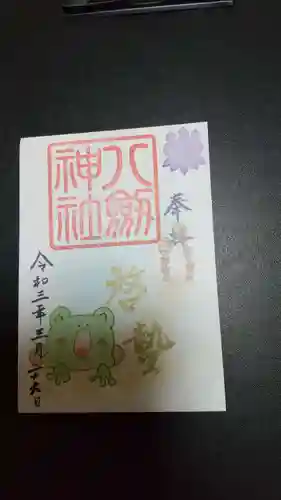 奉拝
八剱
神社
啓蟄
令和三年三月二十六日